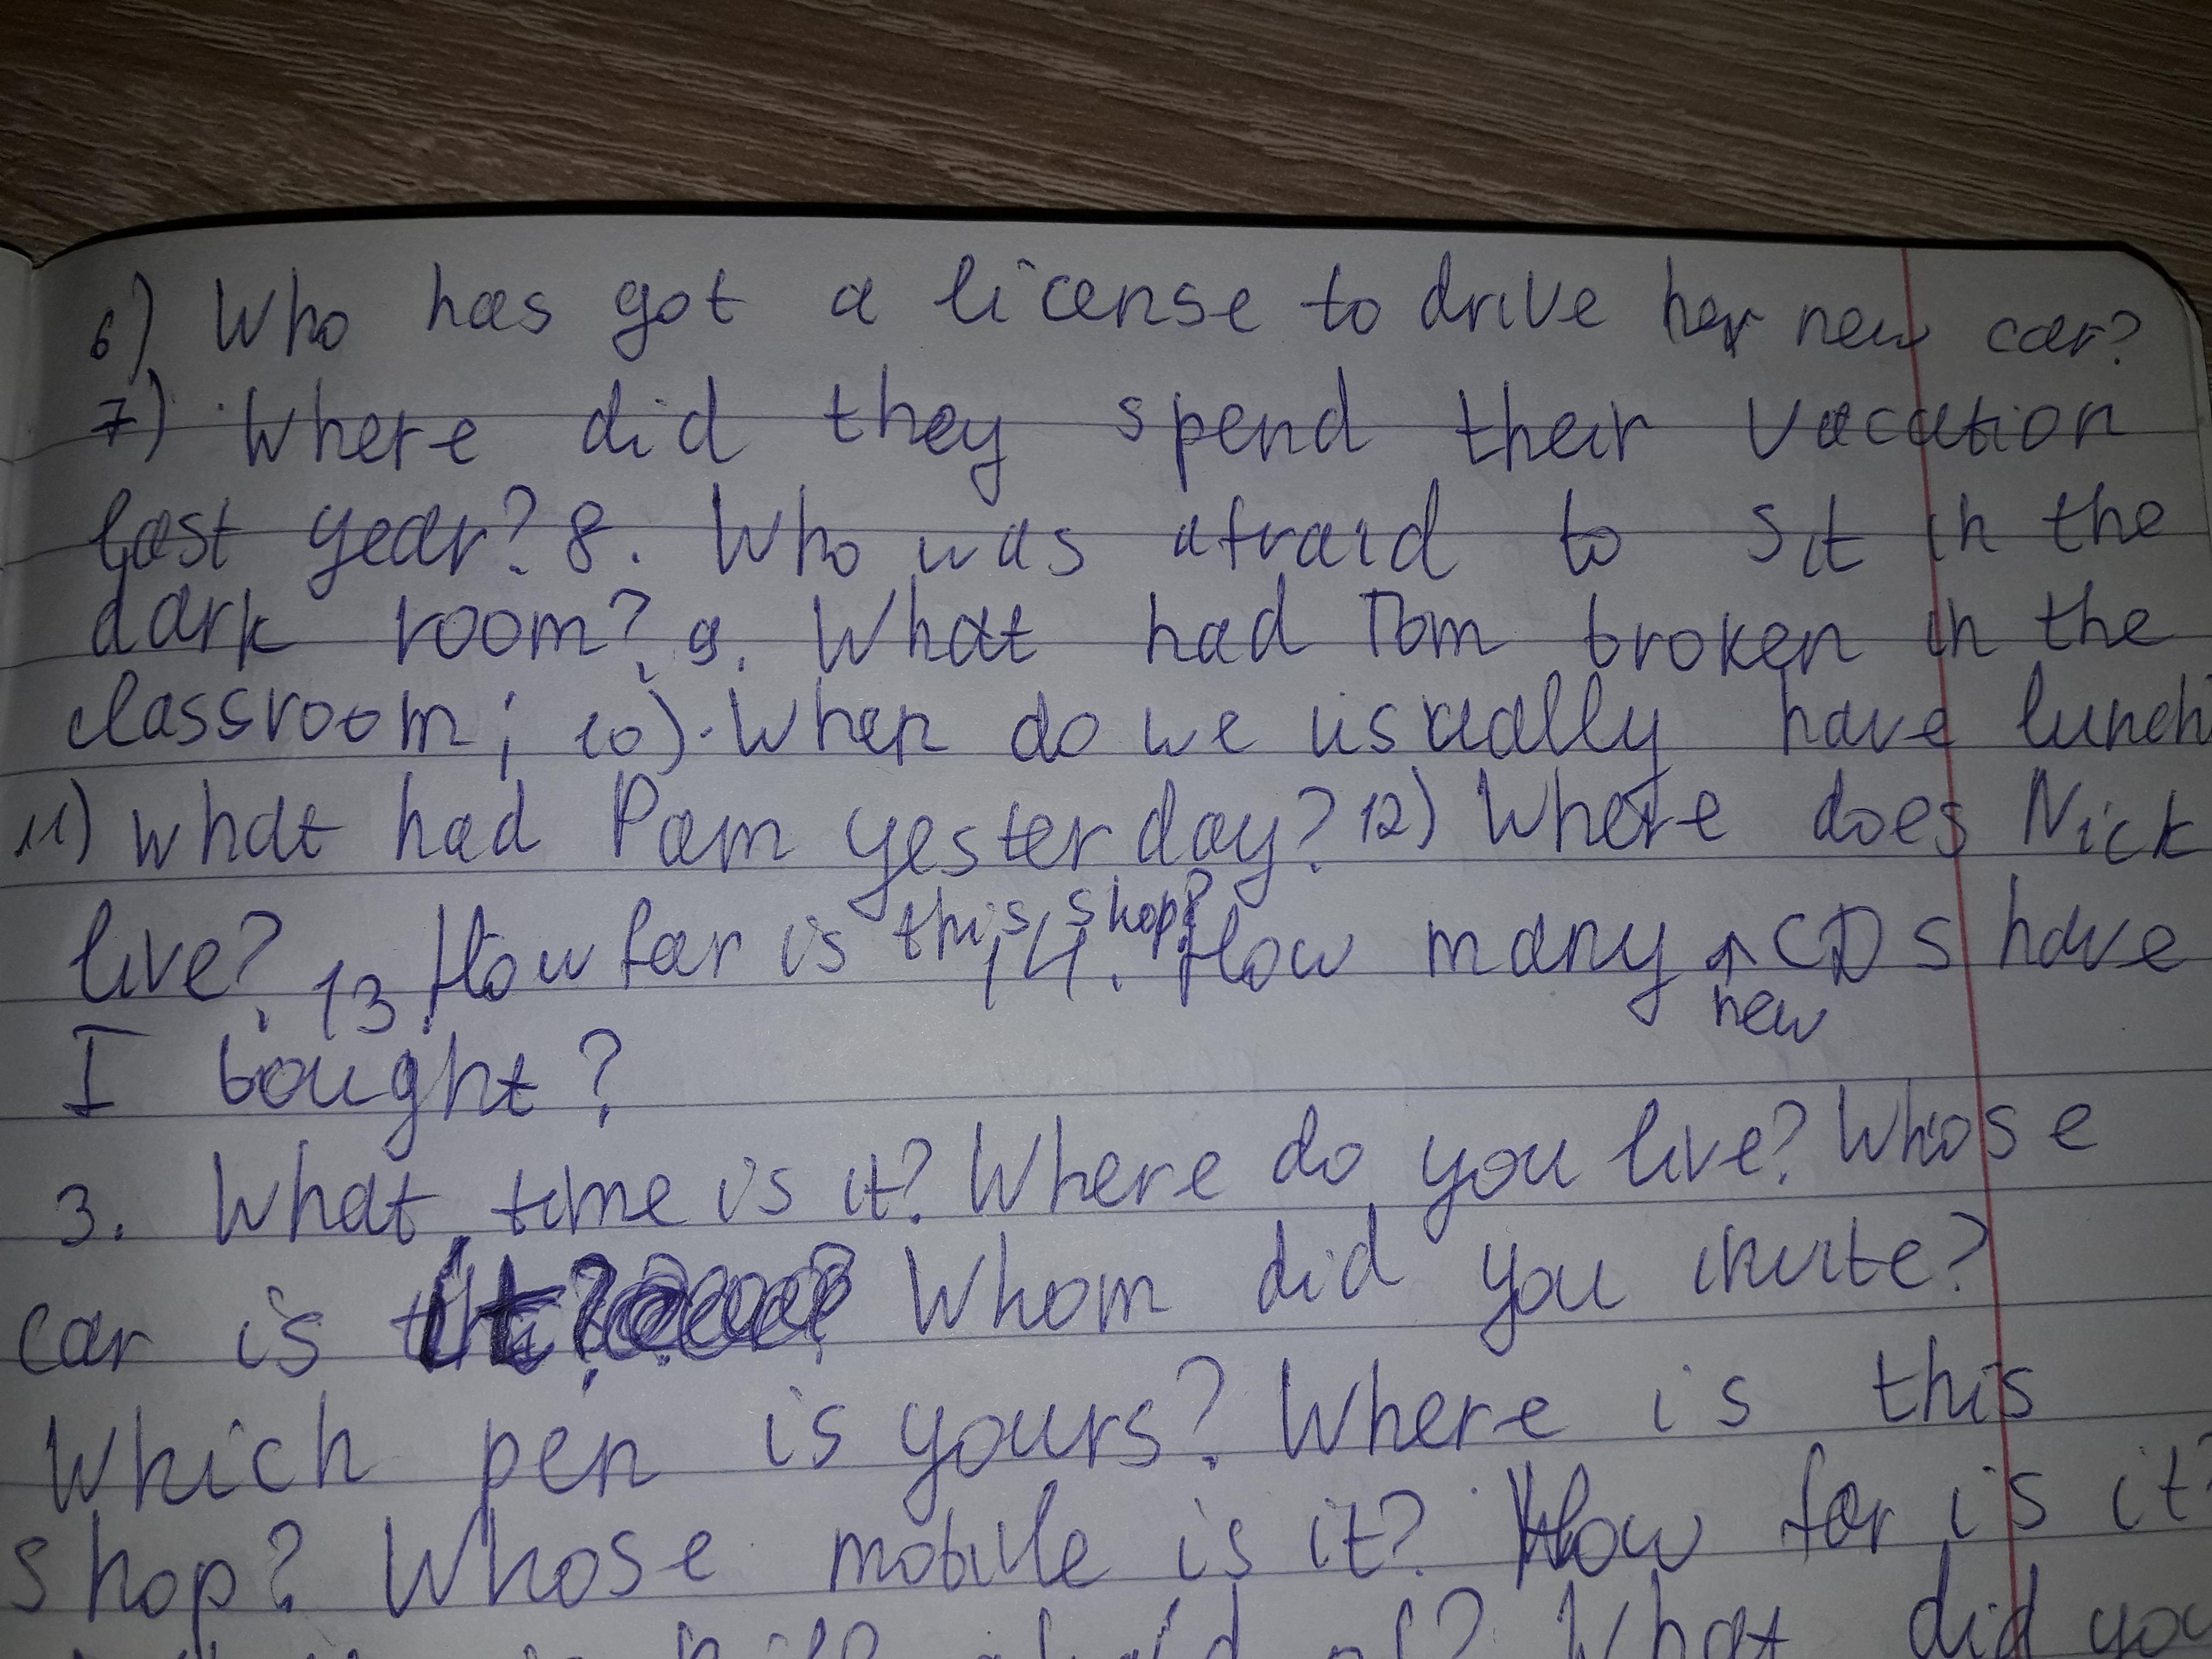 6) Who has got a license to drive her new car?
7) Where did they spend their vacation
last year? 8. Who was afraid to sit in the
dark room? 9. What had Tom broken in the
classroom; 10). When do we usually have lunch?
11) What had Pam yesterday? 12) Where does Nick
live? 13. How far is this shop? 14. How many new CDs have
I bought?
3. What time is it? Where do you live? Whose
car is it? Whom did you invite?
Which pen is yours? Where is this
shop? Whose mobile is it? How far is it?
of? What did you